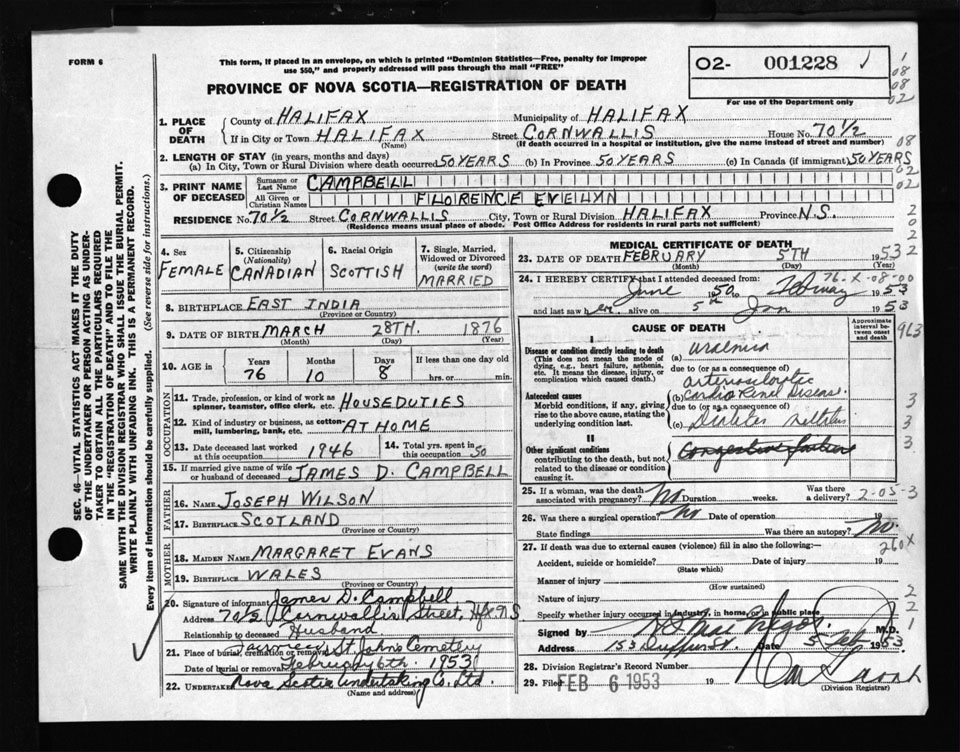 FORM 6
This form, if placed in an envelope, on which is printed "Dominion Statistics—Free, penalty for improper
use $50," and properly addressed will pass through the mail "FREE"
O2- 001228
For use of the Department only
PROVINCE OF NOVA SCOTIA—REGISTRATION OF DEATH
1. PLACE OF DEATH
County of HALIFAX Municipality of HALIFAX
If in City or Town HALIFAX Street CORNWALLIS House No. 70½
(Name) (If death occurred in a hospital or institution, give the name instead of street and number)
2. LENGTH OF STAY (in years, months and days)
(a) In City, Town or Rural Division where death occurred 50 YEARS (b) In Province 50 YEARS (c) In Canada (if immigrant) 50 YEARS
3. PRINT NAME OF DECEASED
Surname or Last Name CAMPBELL
All Given or Christian Names FLORENCE EVELYN
RESIDENCE No. 70½ Street CORNWALLIS City, Town or Rural Division HALIFAX Province N.S.
(Residence means usual place of abode. Post Office Address for residents in rural parts not sufficient)
4. Sex FEMALE
5. Citizenship (Nationality) CANADIAN
6. Racial Origin SCOTTISH
7. Single, Married, Widowed or Divorced (write the word) MARRIED
8. BIRTHPLACE EAST INDIA
(Province or Country)
9. DATE OF BIRTH MARCH 28TH. 1876
(Month) (Day) (Year)
10. AGE in Years 76 Months 10 Days 8 If less than one day old hrs. or min.
OCCUPATION
11. Trade, profession, or kind of work as spinner, teamster, office clerk, etc. HOUSEDUTIES
12. Kind of industry or business, as cotton-mill, lumbering, bank, etc. AT HOME
13. Date deceased last worked at this occupation 1946
14. Total yrs. spent in this occupation 50
15. If married give name of wife or husband of deceased JAMES D. CAMPBELL
FATHER
16. Name JOSEPH WILSON
17. Birthplace SCOTLAND
(Province or Country)
MOTHER
18. Maiden Name MARGARET EVANS
19. Birthplace WALES
(Province or Country)
20. Signature of informant James D. Campbell
Address 70½ Cornwallis Street, Hfx N S
Relationship to deceased Husband
21. Place of burial, cremation or removal Fairview St Johns Cemetery
Date of burial or removal February 6th. 1953
22. Undertaker Nova Scotia Undertaking Co. Ltd.
(Name and address)
MEDICAL CERTIFICATE OF DEATH
23. DATE OF DEATH FEBRUARY 5TH 1953
(Month) (Day) (Year)
24. I HEREBY CERTIFY that I attended deceased from:
June 1950 to February 1953
and last saw her alive on 5th Jan 1953
CAUSE OF DEATH
Approximate interval between onset and death
I
Disease or condition directly leading to death
(This does not mean the mode of dying, e.g., heart failure, asthenia, etc. It means the disease, injury, or complication which caused death.)
(a) uraemia
due to (or as a consequence of)
Antecedent causes
Morbid conditions, if any, giving rise to the above cause, stating the underlying condition last.
(b) Cardio Renal Disease.
due to (or as a consequence of)
(c) Diabetes
II
Other significant conditions
contributing to the death, but not related to the disease or condition causing it.
Congestive failure
25. If a woman, was the death associated with pregnancy? No Duration weeks. Was there a delivery?
26. Was there a surgical operation? No Date of operation 19
State findings Was there an autopsy? No.
27. If death was due to external causes (violence) fill in also the following:—
Accident, suicide or homicide? Date of injury 19
(State which)
Manner of injury
(How sustained)
Nature of injury
Specify whether injury occurred in industry, in home, or in public place
Signed by M.D.
Address Date 5 Feb 1953
28. Division Registrar's Record Number
29. Filed FEB 6 1953 19
(Division Registrar)
SEC. 46—VITAL STATISTICS ACT MAKES IT THE DUTY
OF THE UNDERTAKER OR PERSON ACTING AS UNDER-
TAKER TO OBTAIN ALL THE PARTICULARS REQUIRED
IN THE "REGISTRATION OF DEATH" AND TO FILE THE
SAME WITH THE DIVISION REGISTRAR WHO SHALL ISSUE THE BURIAL PERMIT.
WRITE PLAINLY WITH UNFADING INK. THIS IS A PERMANENT RECORD.
Every item of information should be carefully supplied. (See reverse side for instructions.)
1
08
08
02
08
02
02
2
0
2
2
76-X-08-00
963
3
3
3
2-05-3
260X
2
2
1